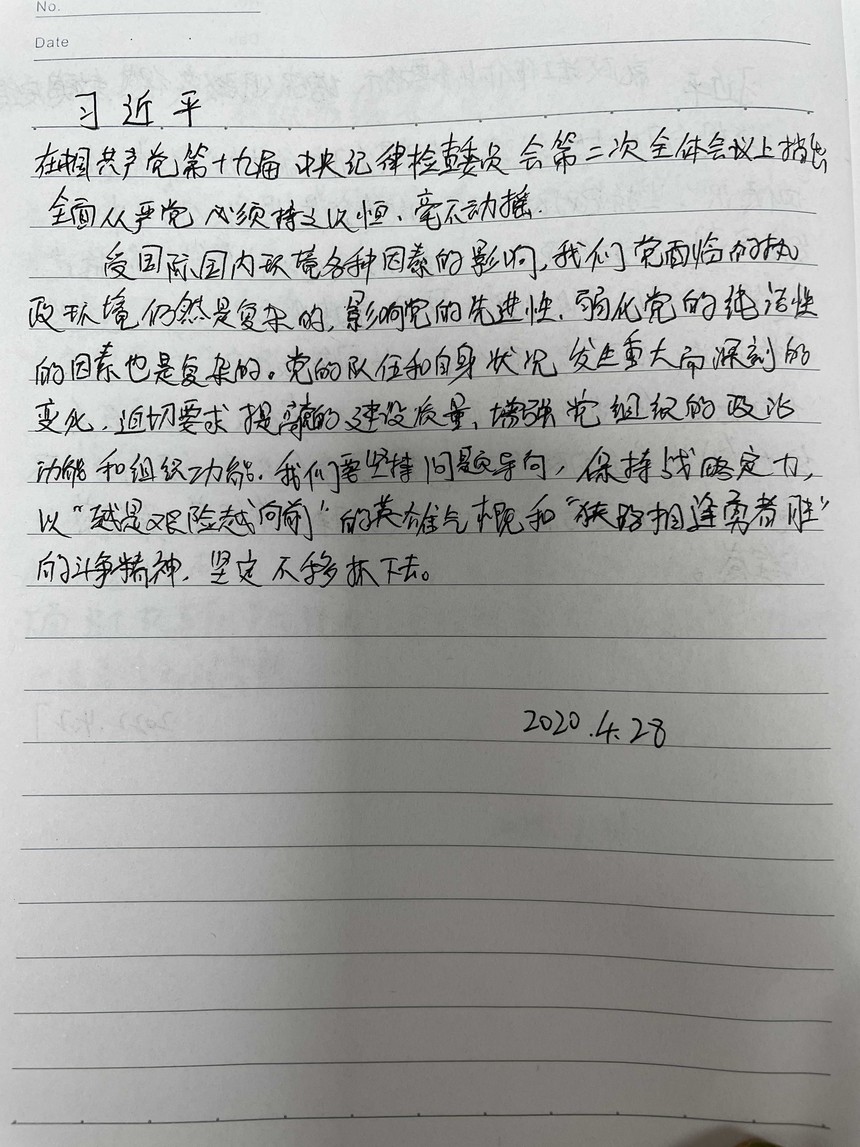 No.
Date
习近平
在中国共产党第十九届中央纪律检查委员会第二次全体会议上指出
全面从严党 必须持之以恒、毫不动摇.
受国际国内环境各种因素的影响,我们党面临的执
政环境仍然是复杂的,影响党的先进性、弱化党的纯洁性
的因素也是复杂的。党的队伍和自身状况发生重大而深刻的
变化,迫切要求提高党的建设质量,增强党组织的政治
功能和组织功能.我们要坚持问题导向,保持战略定力,
以“越是艰险越向前”的英雄气概和“狭路相逢勇者胜”
的斗争精神,坚定不移抓下去。
2020.4.28